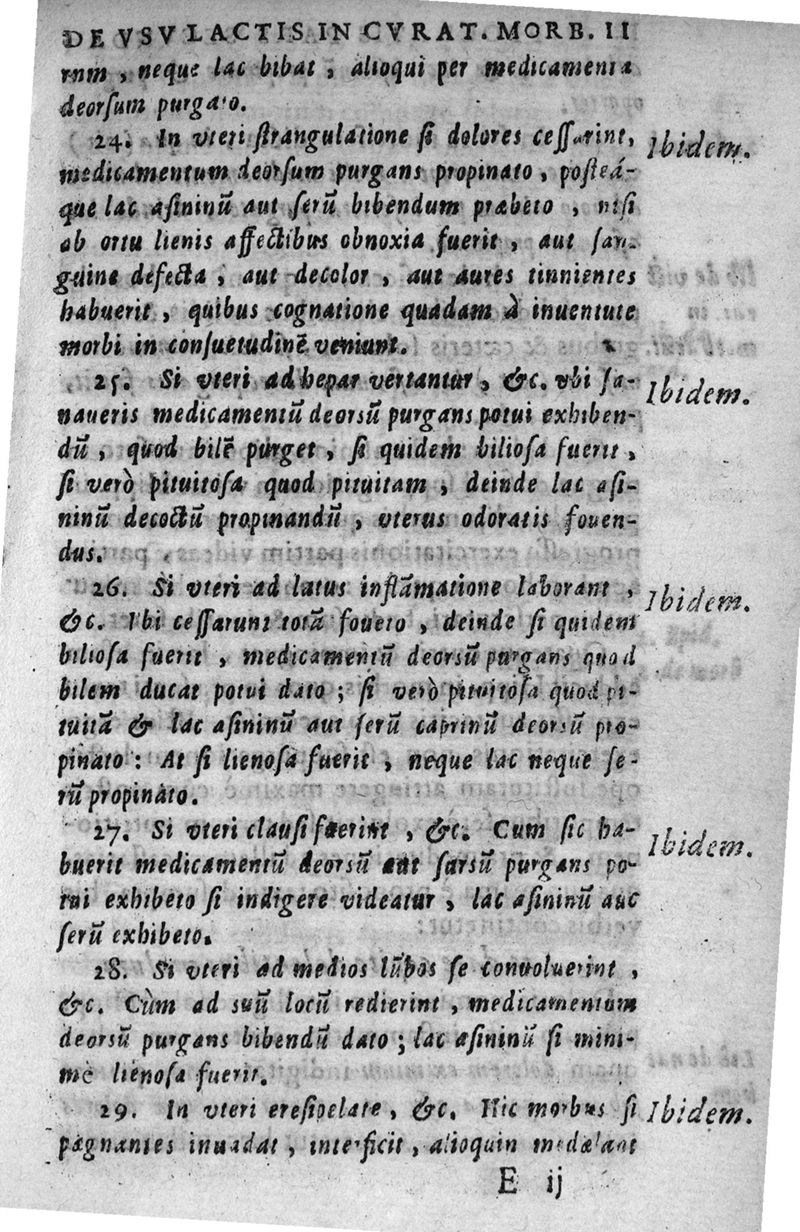 DE VSV LACTIS IN CVRAT. MORB. II
rum, neque lac bibat, alioqui per medicamenta
deorſum purgato.
24. In vteri ſtrangulatione ſi dolores ceſſarint, Ibidem.
medicamentum deorſum purgans propinato, poſteá-
que lac aſininū aut ſerū bibendum præbeto, niſi
ab ortu lienis affectibus obnoxia fuerit, aut ſan-
guine defecta, aut decolor, aut aures tinnientes
habuerit, quibus cognatione quadam à inuentute
morbi in conſuetudinē veniunt.
25. Si vteri ad hepar vertantur, &c. vbi ſa- Ibidem.
naueris medicamentū deorſū purgans potui exhiben-
dū, quod bilē purget, ſi quidem bilioſa fuerit,
ſi verò pituitoſa quod pituitam, deinde lac aſi-
ninū decoctū propinandū, vterus odoratis fouen-
dus.
26. Si vteri ad latus inflāmatione laborant, Ibidem.
&c. Vbi ceſſarunt totā foueto, deinde ſi quidem
bilioſa fuerit, medicamentū deorſū purgans quod
bilem ducat potui dato; ſi verò pituitoſa quod pi-
tuitā & lac aſininū aut ſerū caprinū deorſū pro-
pinato: At ſi lienoſa fuerit, neque lac neque ſe-
rū propinato.
27. Si vteri clauſi fuerint, &c. Cum ſic ha- Ibidem.
buerit medicamentū deorſū aut ſurſū purgans po-
tui exhibeto ſi indigere videatur, lac aſininū aut
ſerū exhibeto.
28. Si vteri ad medios lūbos ſe conuoluerint,
&c. Cùm ad suū locū redierint, medicamentum
deorſū purgans bibendū dato; lac aſininū ſi mini-
mè lienoſa fuerit.
29. In vteri ereſipelate, &c. Hic morbus ſi Ibidem.
pægnantes inuadat, interficit, alioquin
E ij